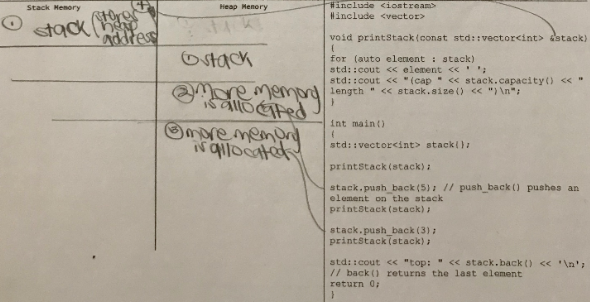 Stack Memory
① stack (stores heap address
Heap Memory
① stack
② More memory
is allocated
③ more memory
is allocated
#include <iostream>
#include <vector>
void printStack(const std::vector<int> &stack)
{
for (auto element : stack)
std::cout << element << ' ';
std::cout << "(cap " << stack.capacity() << "
length " << stack.size() << ")\n";
}
int main()
{
std::vector<int> stack();
printStack(stack);
stack.push_back(5); // push_back() pushes an
element on the stack
printStack(stack);
stack.push_back(3);
printStack(stack);
std::cout << "top: " << stack.back() << '\n';
// back() returns the last element
return 0;
}